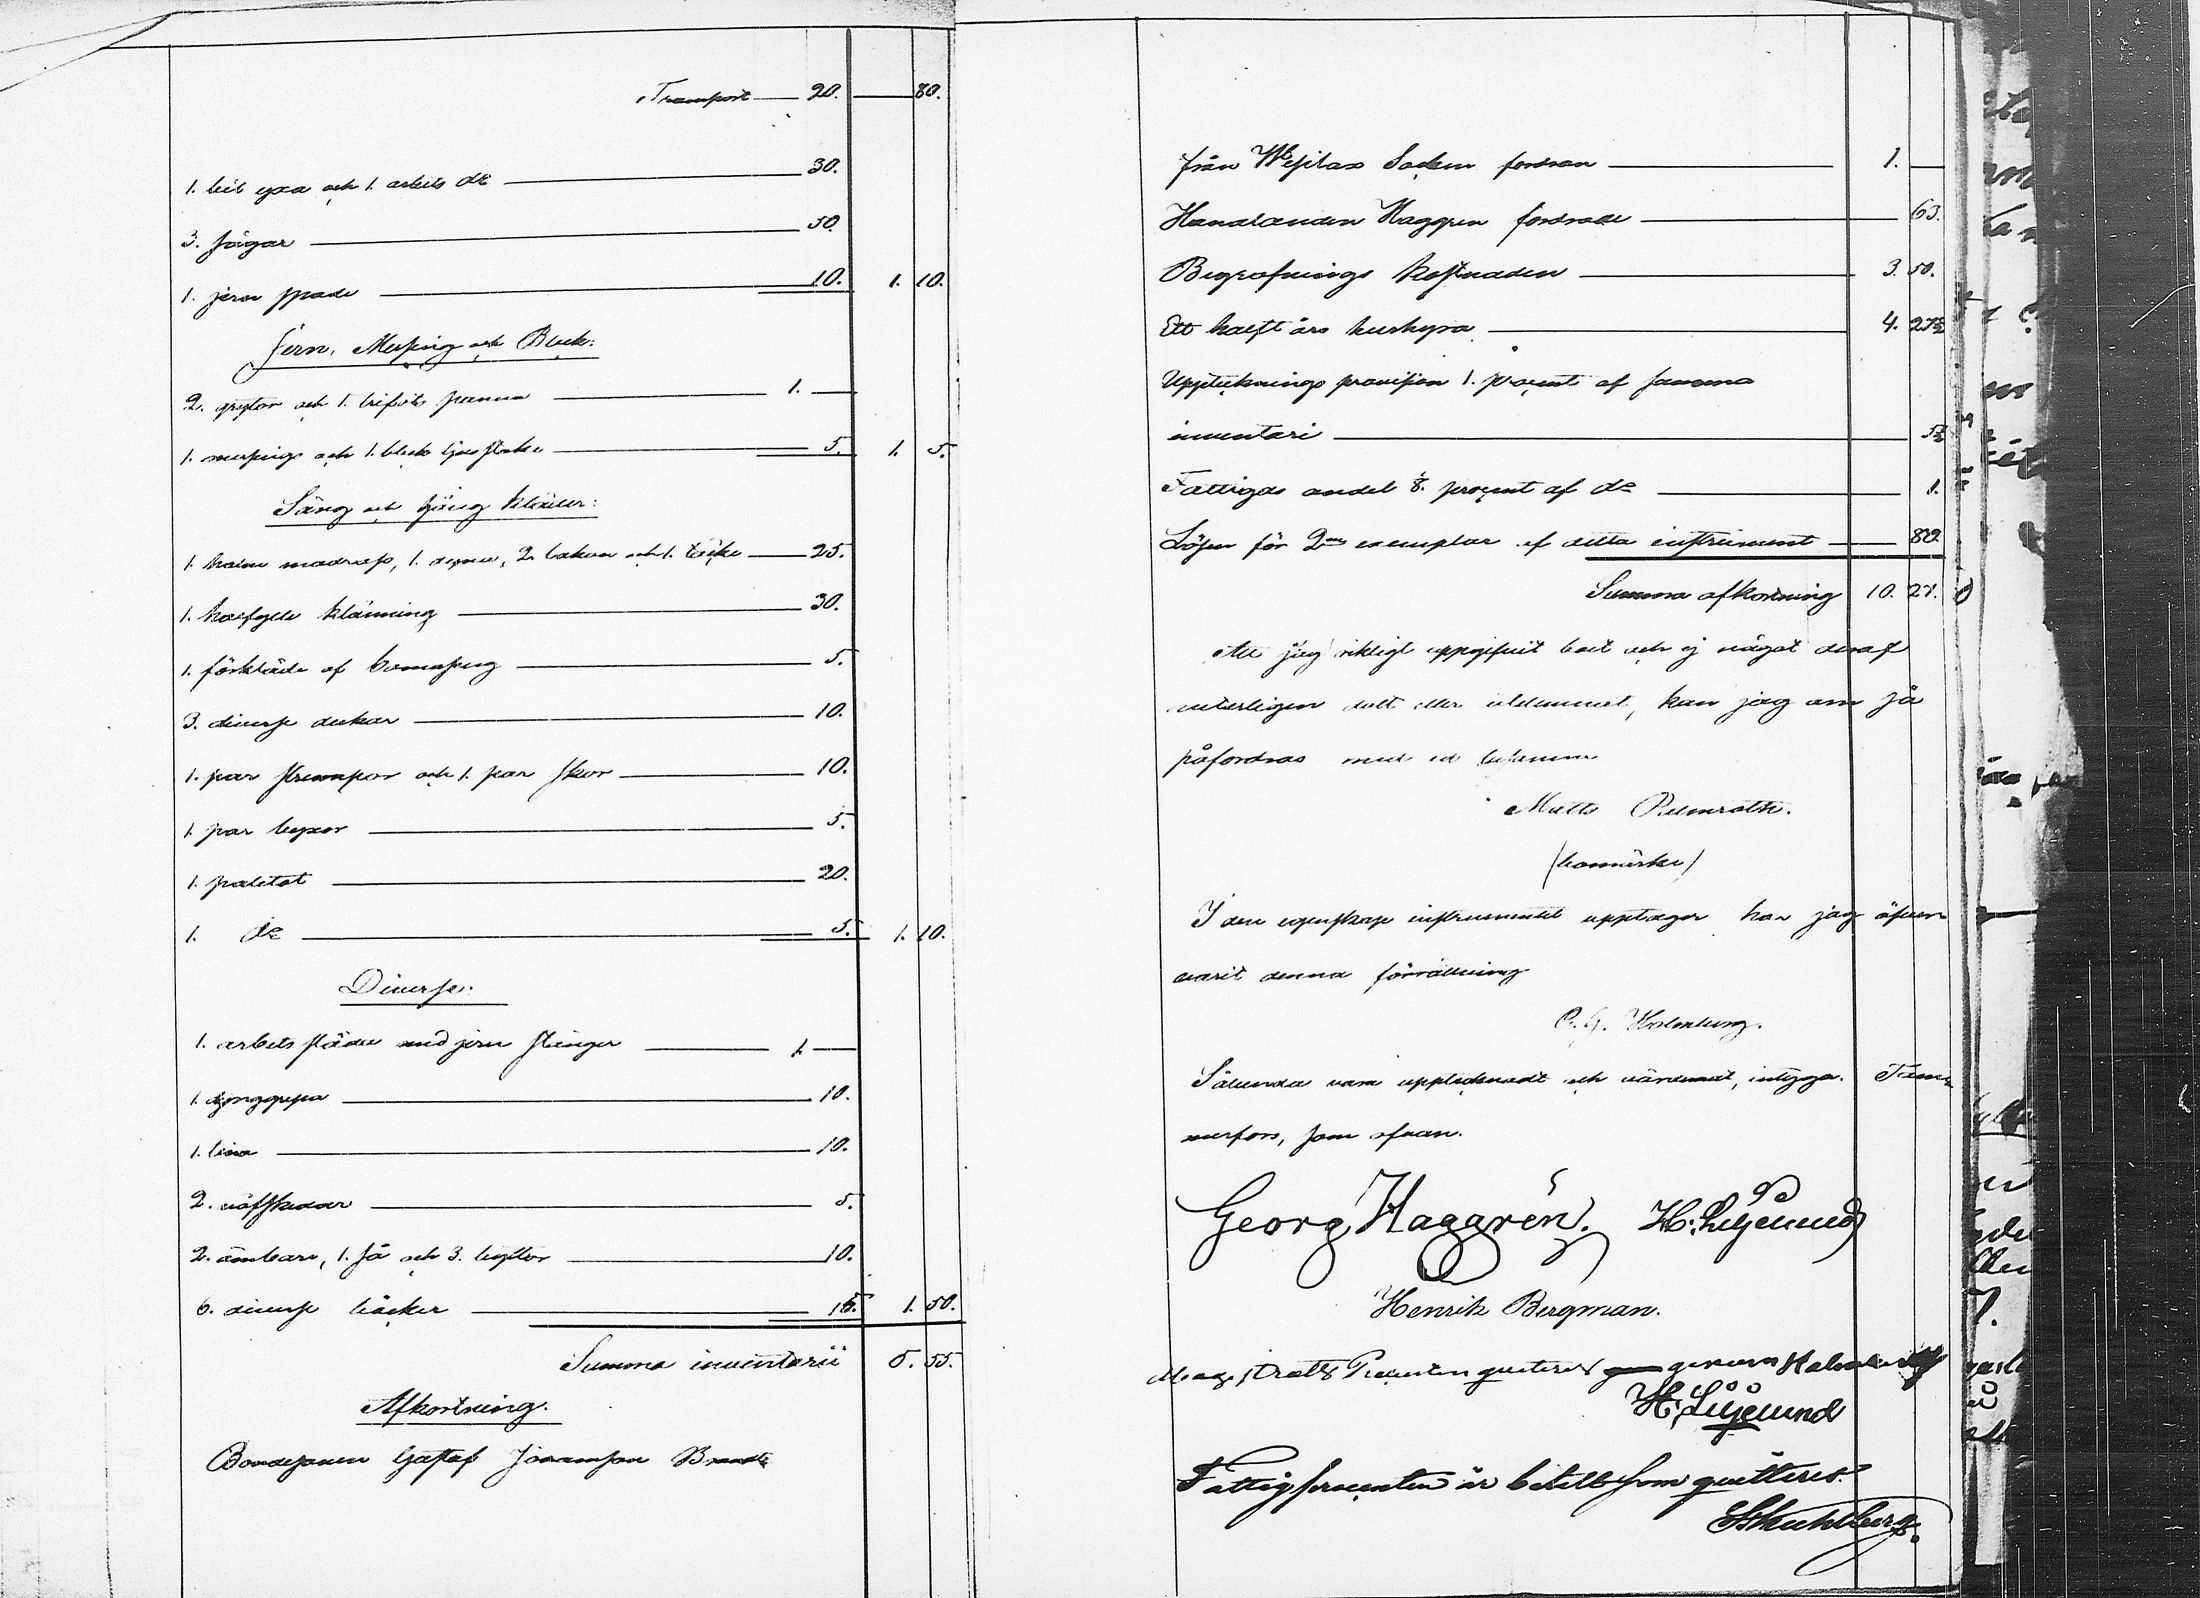 Transport 20. 80.
1. bil yxa och 1. arbets do 30.
3. sågar 50.
1. jern spade 10. 1. 10.
Jern, Messing och Bleck:
2. grytor och 1. trefots panna 1.
1. messings och 1. bleck ljus stake 5. 1. 5.
Säng och Gång kläder:
1. halm madrass, 1. dyna, 2. lakan och 1. täcke 25.
1. halfylle klänning 30.
1. förkläde af bomasing 5.
3. diverse dukar 10.
1. par strumpor och 1. par skor 10.
1. par byxor 5.
1. paletot 20.
1. do 5. 1. 10.
Diverse:
1. arbets släde med jern stänger 1.
1. dynggrepa 10.
1. tina 10.
2. näfskedar 5.
2. ämbare, 1. så och 3. byttor 10.
6. diverse böcker 15. 1. 50.
Summa inventarii 5. 55.
Afkortning.
Bondesonen Gustaf Johansson
från Wesilax Socken fordran 1.
Handlanden Haggren fordrade 63.
Begrafnings kostnaden 3. 50.
Ett halft års hushyra 4. 27½
Upptecknings provision 1. procent af samma
inventari 5½
Fattigas andel ⅛. procent af do 1.
Lösen för 2ne exemplar af detta instrument 80.
Summa afkortning 10. 27.
Att jag riktigt uppgifvit boet och ej något deraf
veterligen dolt eller undanmat, kan jag om så
påfordras med ed besanna
Matts Palmroth.
(bomärke)
I den egenskap instrumentet upptager har jag öfver-
varit denna förrättning
C. G. Holmberg.
Sålunda vara upptecknadt och värderadt, intyga. Tam-
merfors, som ofvan.
Georg Haggrén. H. Liljelund
Henrik Bergman.
Magistrats Procenten quiteras genom
H. Liljelund
Fattigprocenten är betalt som quitteres.